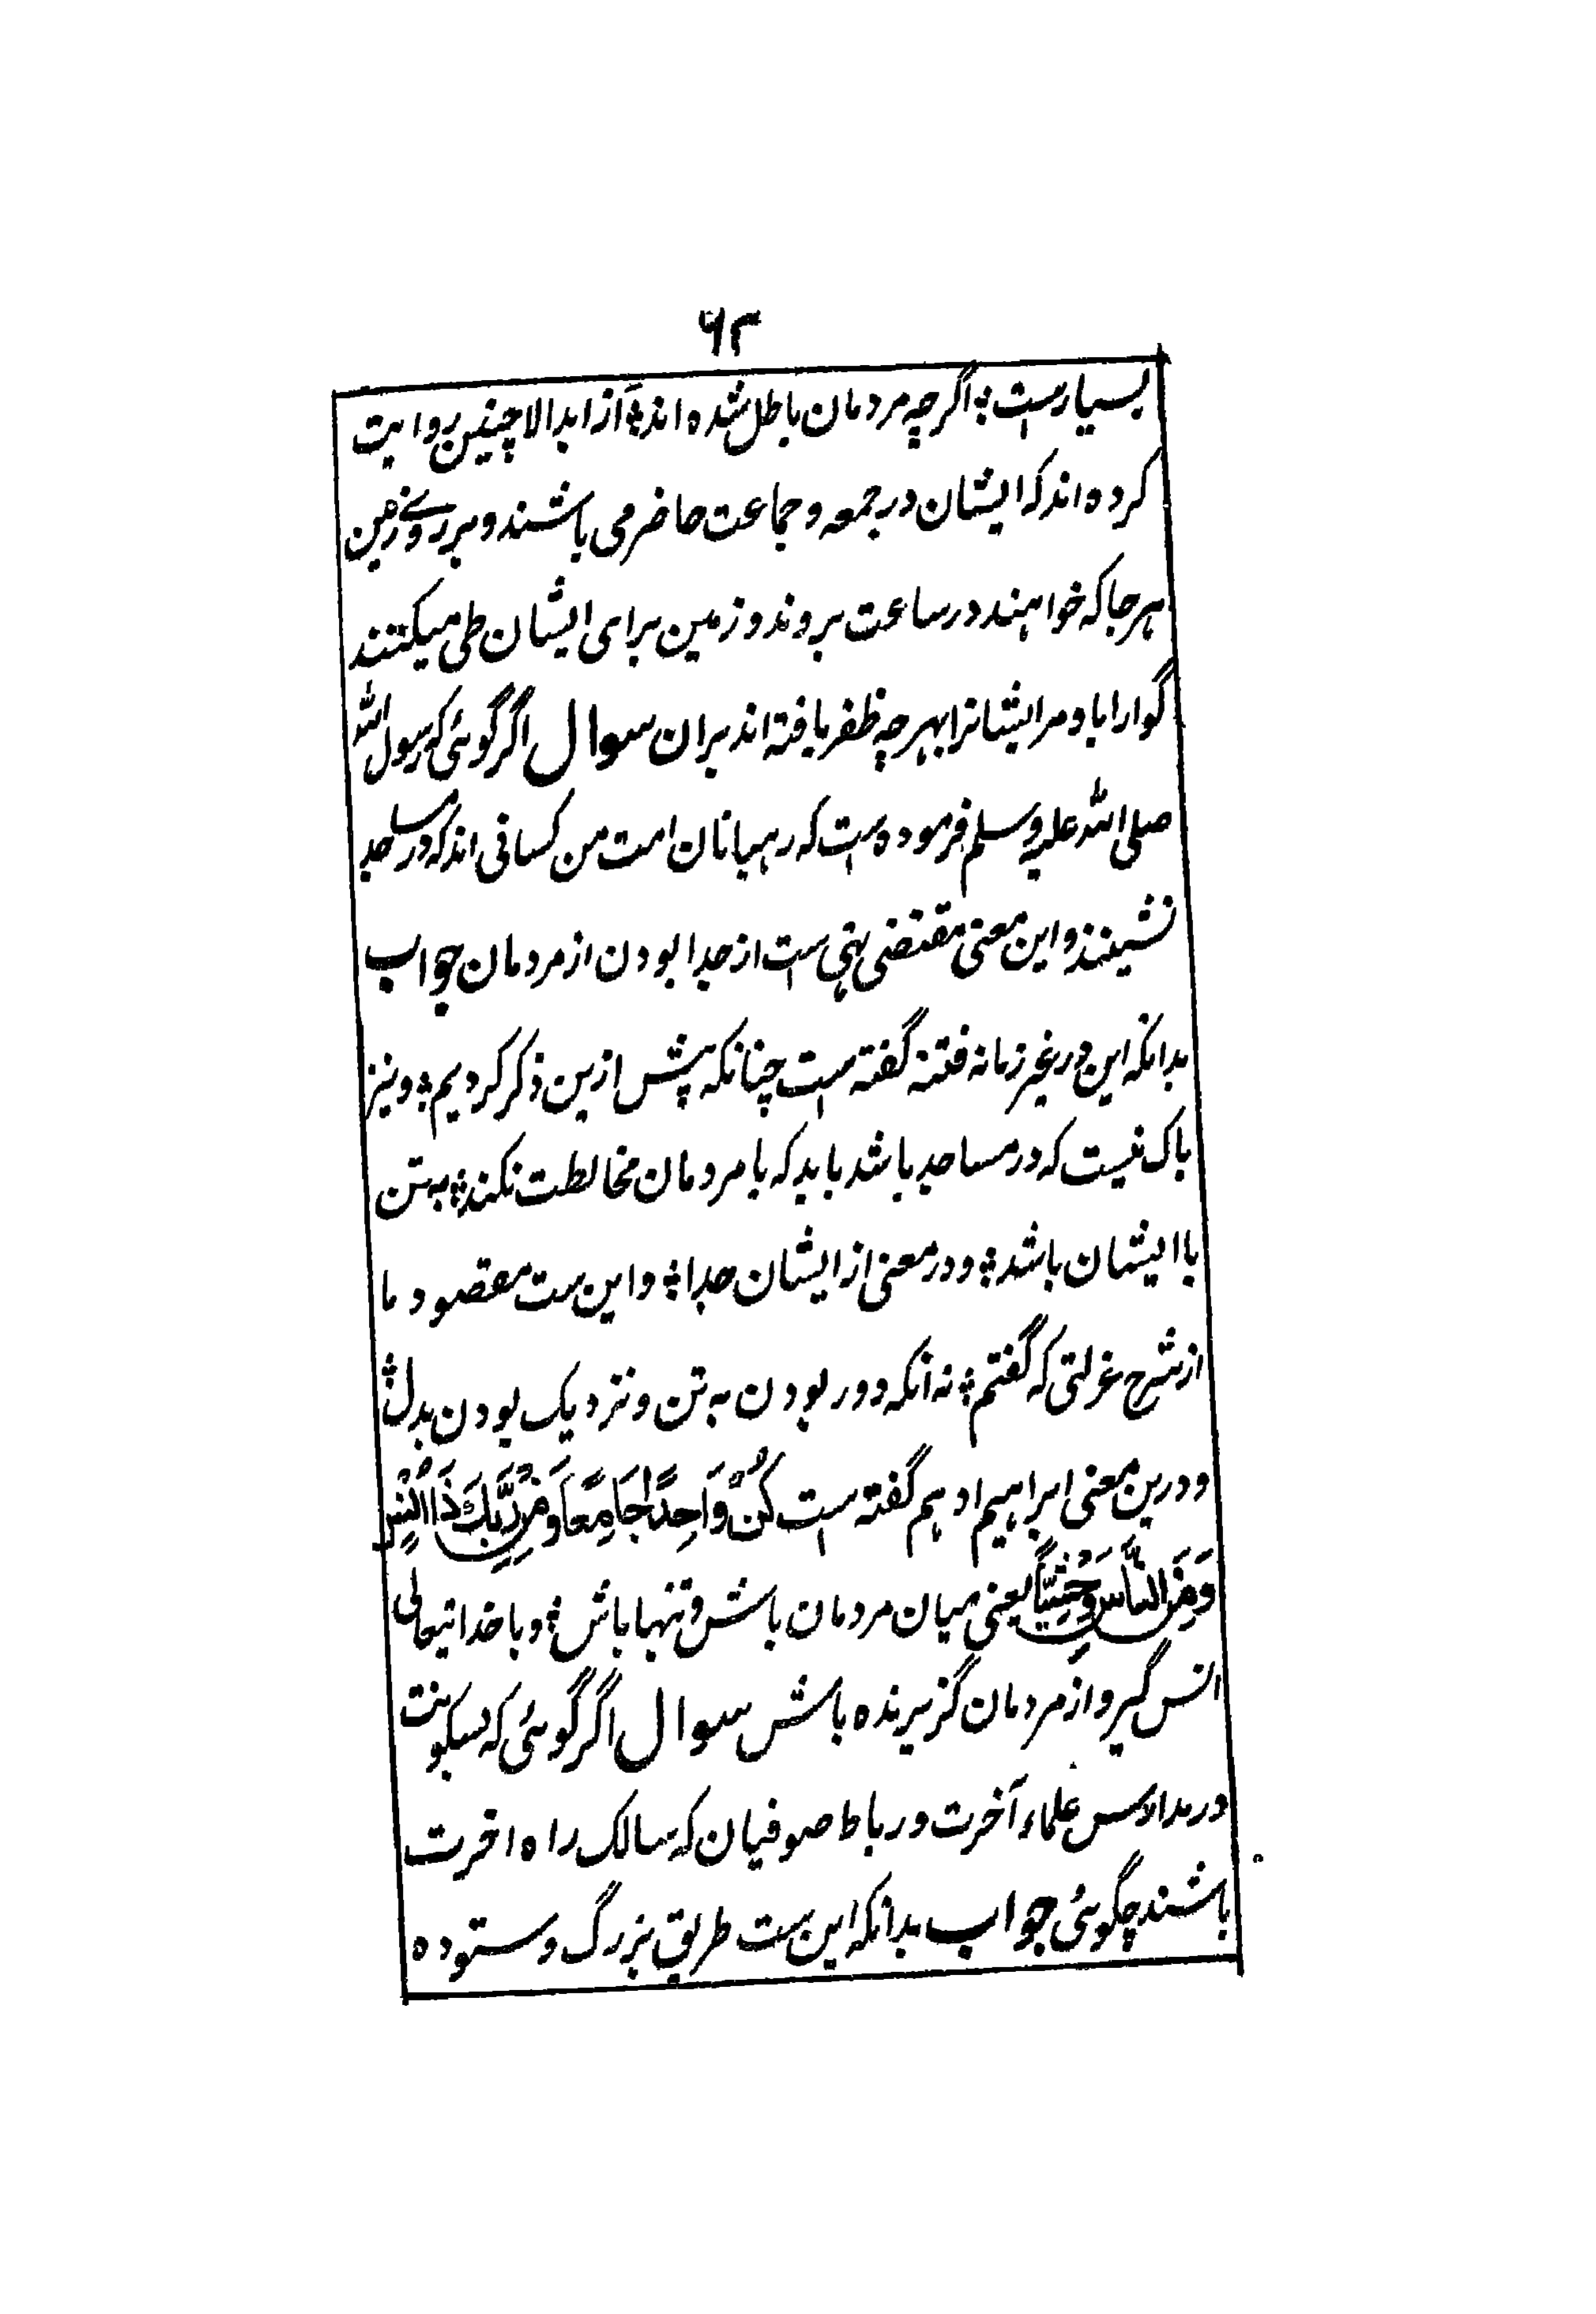 ۶۲
بسیارست ؛ اگرچه مردمان باطل شده اند ؛ از ابدالا چنین روایت
کرده اند که ایشان در جمعه و جماعت حاضر می باشند و بر روئے زمین
هر جا که خواهند در ساعت بروند و زمین برای ایشان طی میکنند
گوارا باد مر ایشانرا بهر چه ظفر یافته اند بران سوال اگر گوئی که رسول الله
صلی الله علیه وسلم فرموده است که رهبانان امت من کسانی اند که در مساجد
نشینند و این معنی مقتضی نهی ست از جدا بودن از مردمان جواب
بدانکه این در غیر زمانه فتنه گفته است چنانکه پیش ازین ذکر کردیم ؛ و نیز
باک نیست که در مساجد باشد باید که با مردمان مخالطت نکند ؛ به تن
با ایشان باشد ؛ و در معنی از ایشان جدا ؛ و این ست مقصود ما
از شرح عزلتی که گفتم ؛ نه آنکه دور بودن به تن و نزدیک بودن بدل ؛
و درین معنی ابراهیم ادهم گفته است کُنْ وَاحِدًا جَامِعًا وَمِنْ رَّبِّكَ ذَا اُنْسٍ
وَمِنَ النَّاسِ وَحْشِيًّا یعنی میان مردمان باش و تنها باش ؛ و با خدا تیعالی
انس گیر و از مردمان گزیرنده باش سوال اگر گوئی که سکونت
در مدارس علماء آخرت و رباط صوفیان که سالک راه اخرت
باشند چگوئی جواب بدانکه این ست طریق بزرگ و ستوده